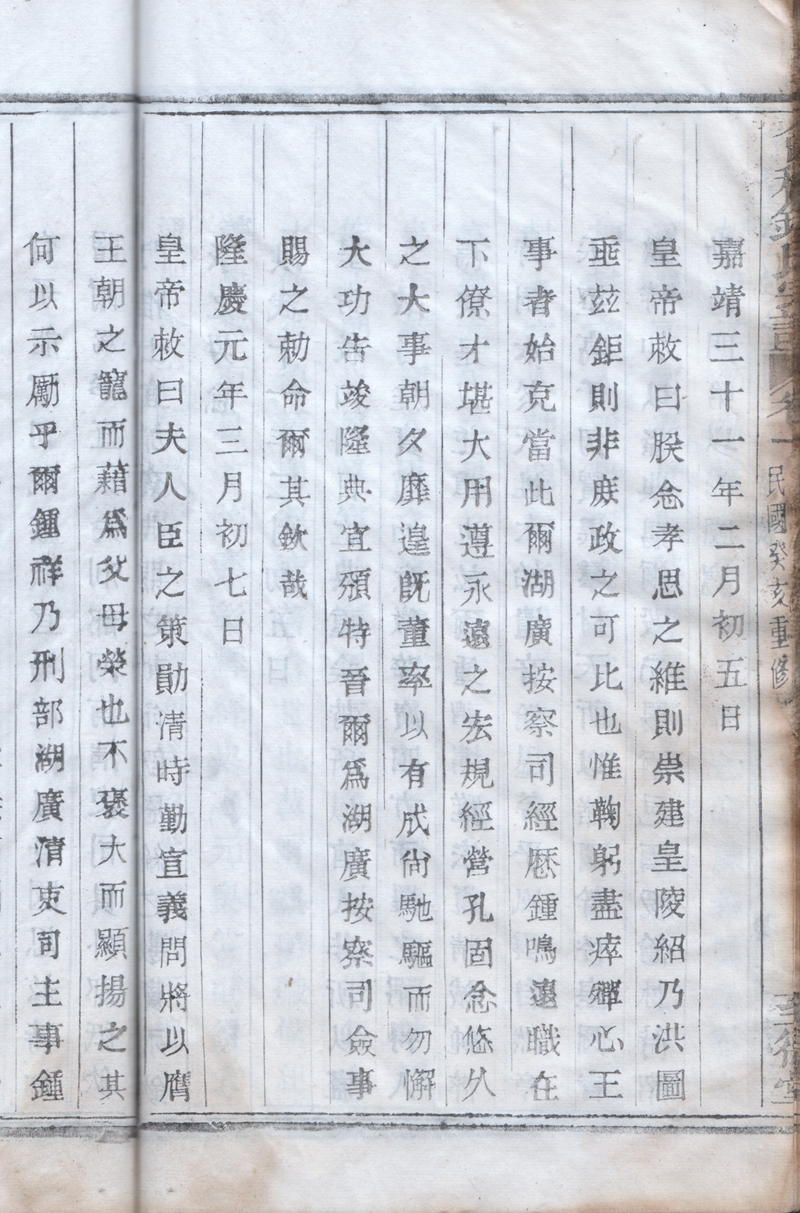 鍾氏宗譜 卷一 民國癸亥重修
嘉靖三十一年二月初五日
皇帝敕曰朕念孝思之維則祟建皇陵紹乃洪圖
亟玆鉅則非庶政之可比也惟鞠躬盡瘁殫心王
事者始克當此爾湖廣按察司經歷鍾鳴遠職在
下僚才堪大用遵永遠之宏規經營孔固念悠久
之大事朝夕靡遑既董率以有成尙馳驅而勿懈
大功告竣隆典宜頒特晉爾爲湖廣按察司僉事
賜之勅命爾其欽哉
隆慶元年三月初七日
皇帝敕曰夫人臣之策勛清時勤宣義問將以膺
王朝之寵而藉爲父母榮也不褒大而顯揚之其
何以示勵乎爾鍾祥乃刑部湖廣清吏司主事鍾